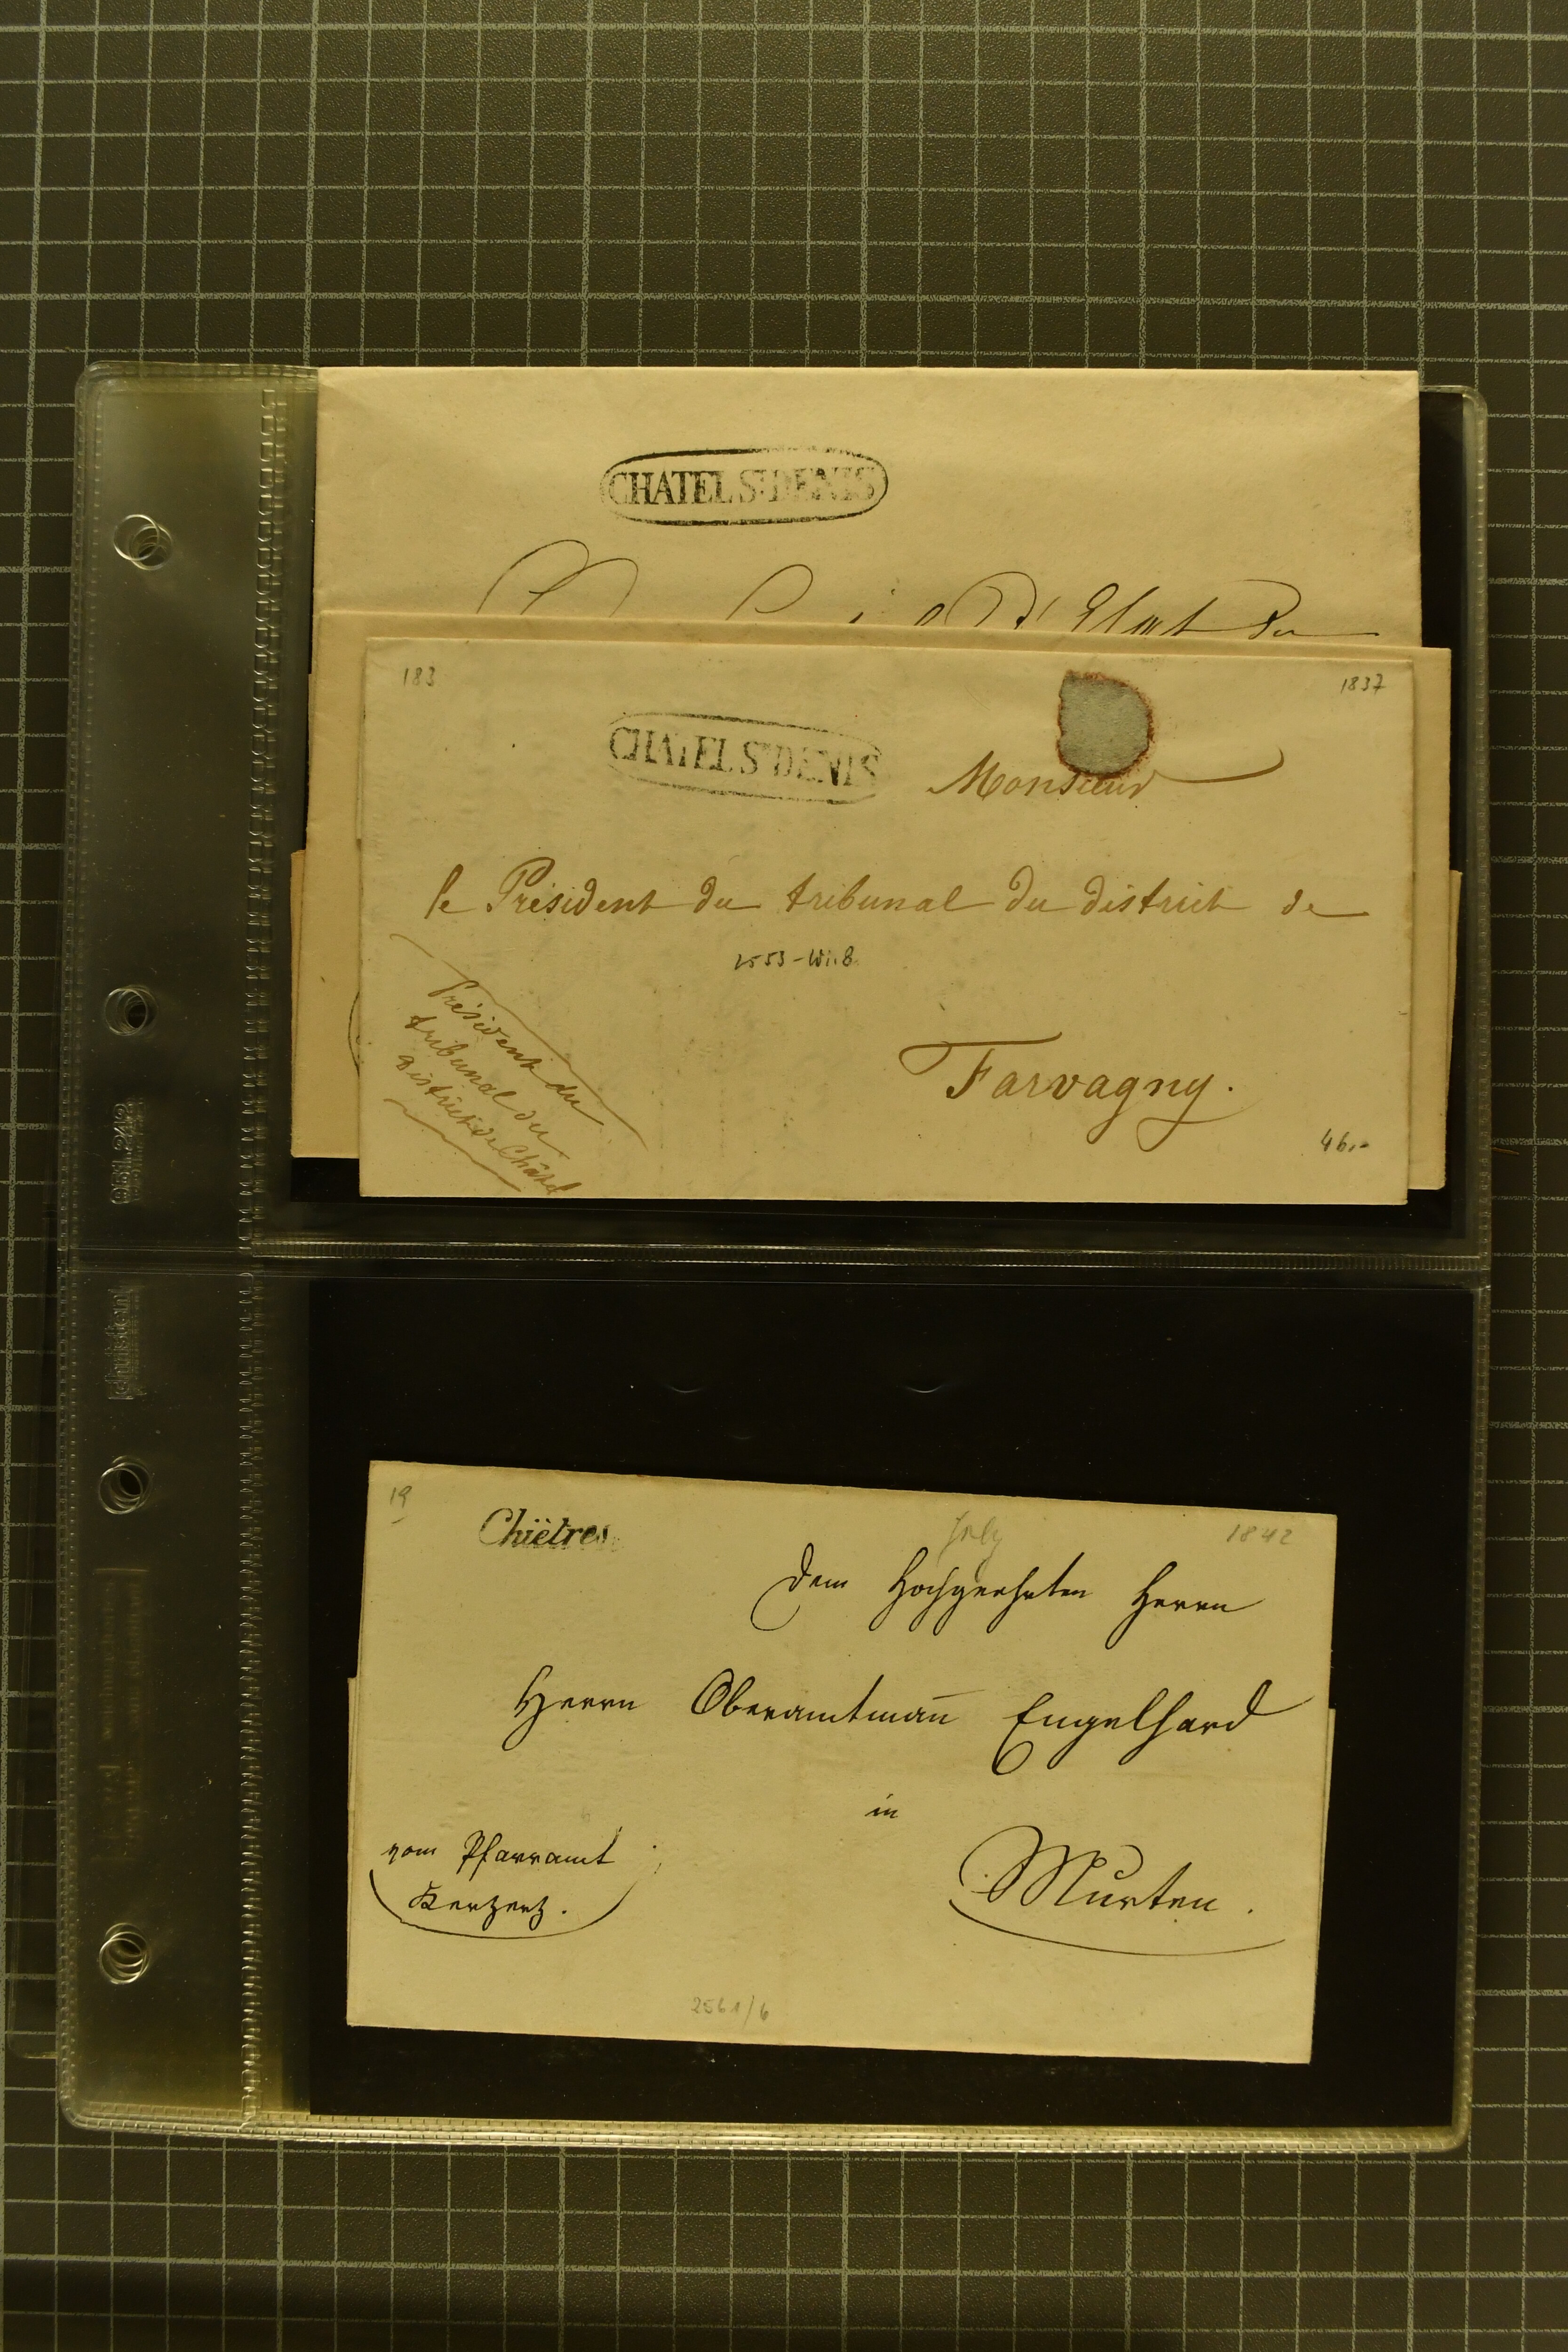 CHATEL ST DENIS
d'Etat du
183
1837
CHATEL ST DENIS
Monsieur
le Président du tribunal du district de
2553-Wi.8
Président du
tribunal du
district de Châtel
Farvagny.
46.-
19
Chiètres
July
1842
Dem Hochgeehrten Herrn
Herrn Oberamtman̄ Engelhard
in
Murten.
vom Pfarramt
Kerzerz.
2561/6